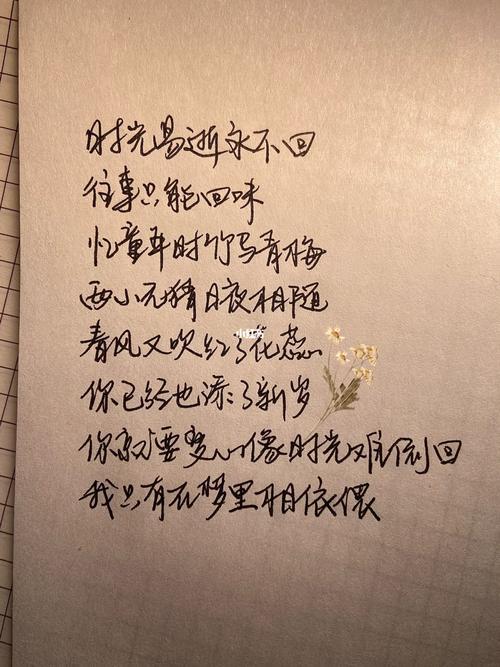 时光易逝永不回
往事只能回味
忆童年时竹马青梅
两小无猜日夜相随
春风又吹红了花蕊
你已经也添了新岁
你就要变心像时光难倒回
我只有在梦里相依偎
小红书